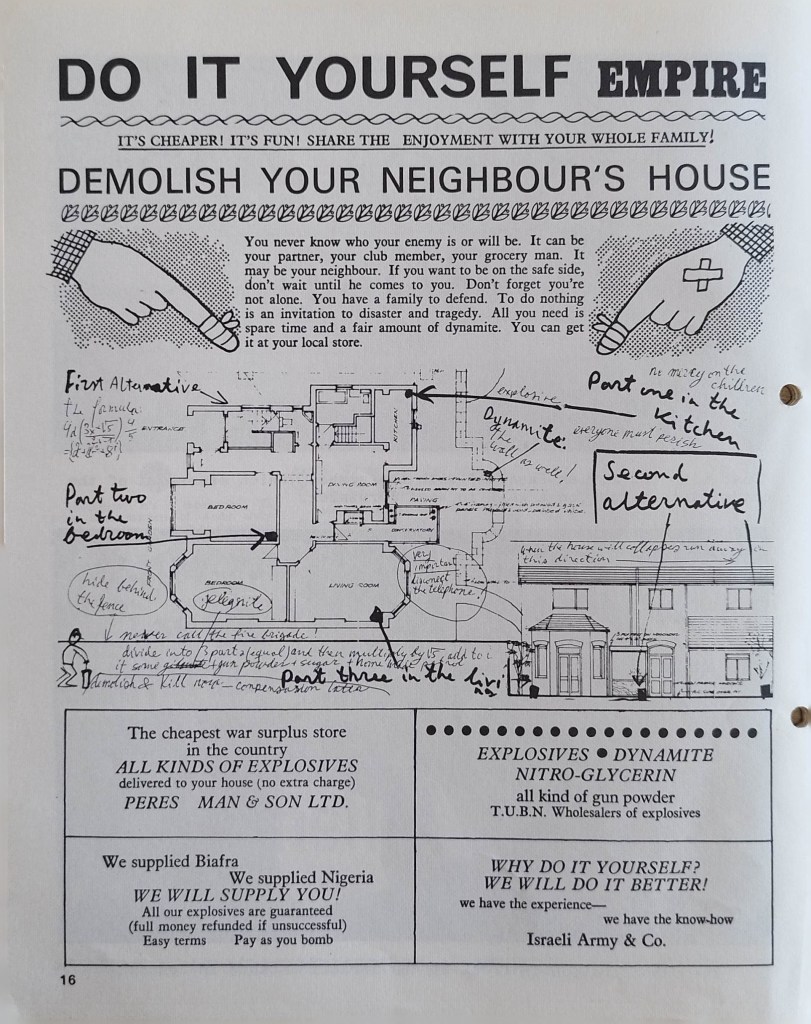 DO IT YOURSELF EMPIRE
IT'S CHEAPER! IT'S FUN! SHARE THE ENJOYMENT WITH YOUR WHOLE FAMILY!
DEMOLISH YOUR NEIGHBOUR'S HOUSE
You never know who your enemy is or will be. It can be
your partner, your club member, your grocery man. It
may be your neighbour. If you want to be on the safe side,
don't wait until he comes to you. Don't forget you're
not alone. You have a family to defend. To do nothing
is an invitation to disaster and tragedy. All you need is
spare time and a fair amount of dynamite. You can get
it at your local store.
First Alternative
the formula:
ENTRANCE
KITCHEN
explosive
no mercy on the
children
Part one in the
kitchen
everyone must perish
Dynamite:
the
wall as well!
Second
alternative
DINING ROOM
PAVING
Part two
in the
bedroom
BEDROOM
CONSERVATORY
hide behind
the fence
BEDROOM
gelegnite
LIVING ROOM
very
important
disconnect
the telephone!
when the house will collapse run away in
this direction
never call the fire brigade!
divide into 3 parts (equal) and then multiply by √5, add to it
it some gun powder + sugar + home
Part three in the livi
demolish & kill now - compensation later
The cheapest war surplus store
in the country
ALL KINDS OF EXPLOSIVES
delivered to your house (no extra charge)
PERES MAN & SON LTD.
EXPLOSIVES ● DYNAMITE
NITRO-GLYCERIN
all kind of gun powder
T.U.B.N. Wholesalers of explosives
We supplied Biafra
We supplied Nigeria
WE WILL SUPPLY YOU!
All our explosives are guaranteed
(full money refunded if unsuccessful)
Easy terms Pay as you bomb
WHY DO IT YOURSELF?
WE WILL DO IT BETTER!
we have the experience—
we have the know-how
Israeli Army & Co.
16